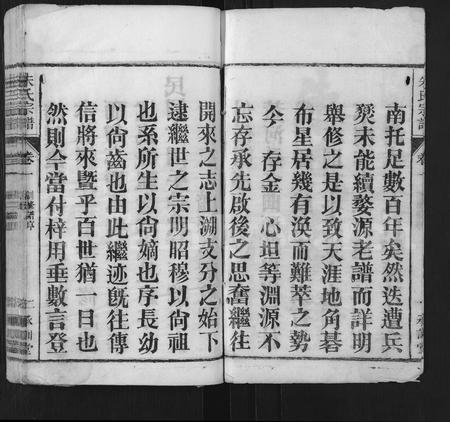 朱氏宗譜
卷
南托足數百年矣然迭遭兵
燹未能續婺源老譜而詳明
舉修之是以致天涯地角碁
布星居幾有渙而難萃之勢
今 存金 心坦等淵源不
忘存承先啟後之思奮繼往
開來之志上溯支分之始下
逮繼世之宗明昭穆以尙祖
也系所生以尙嫡也序長幼
以尙齒也由此繼迹旣往傳
信將來曁乎百世猶一日也
然則今當付梓用垂數言登
朱氏宗譜
卷一